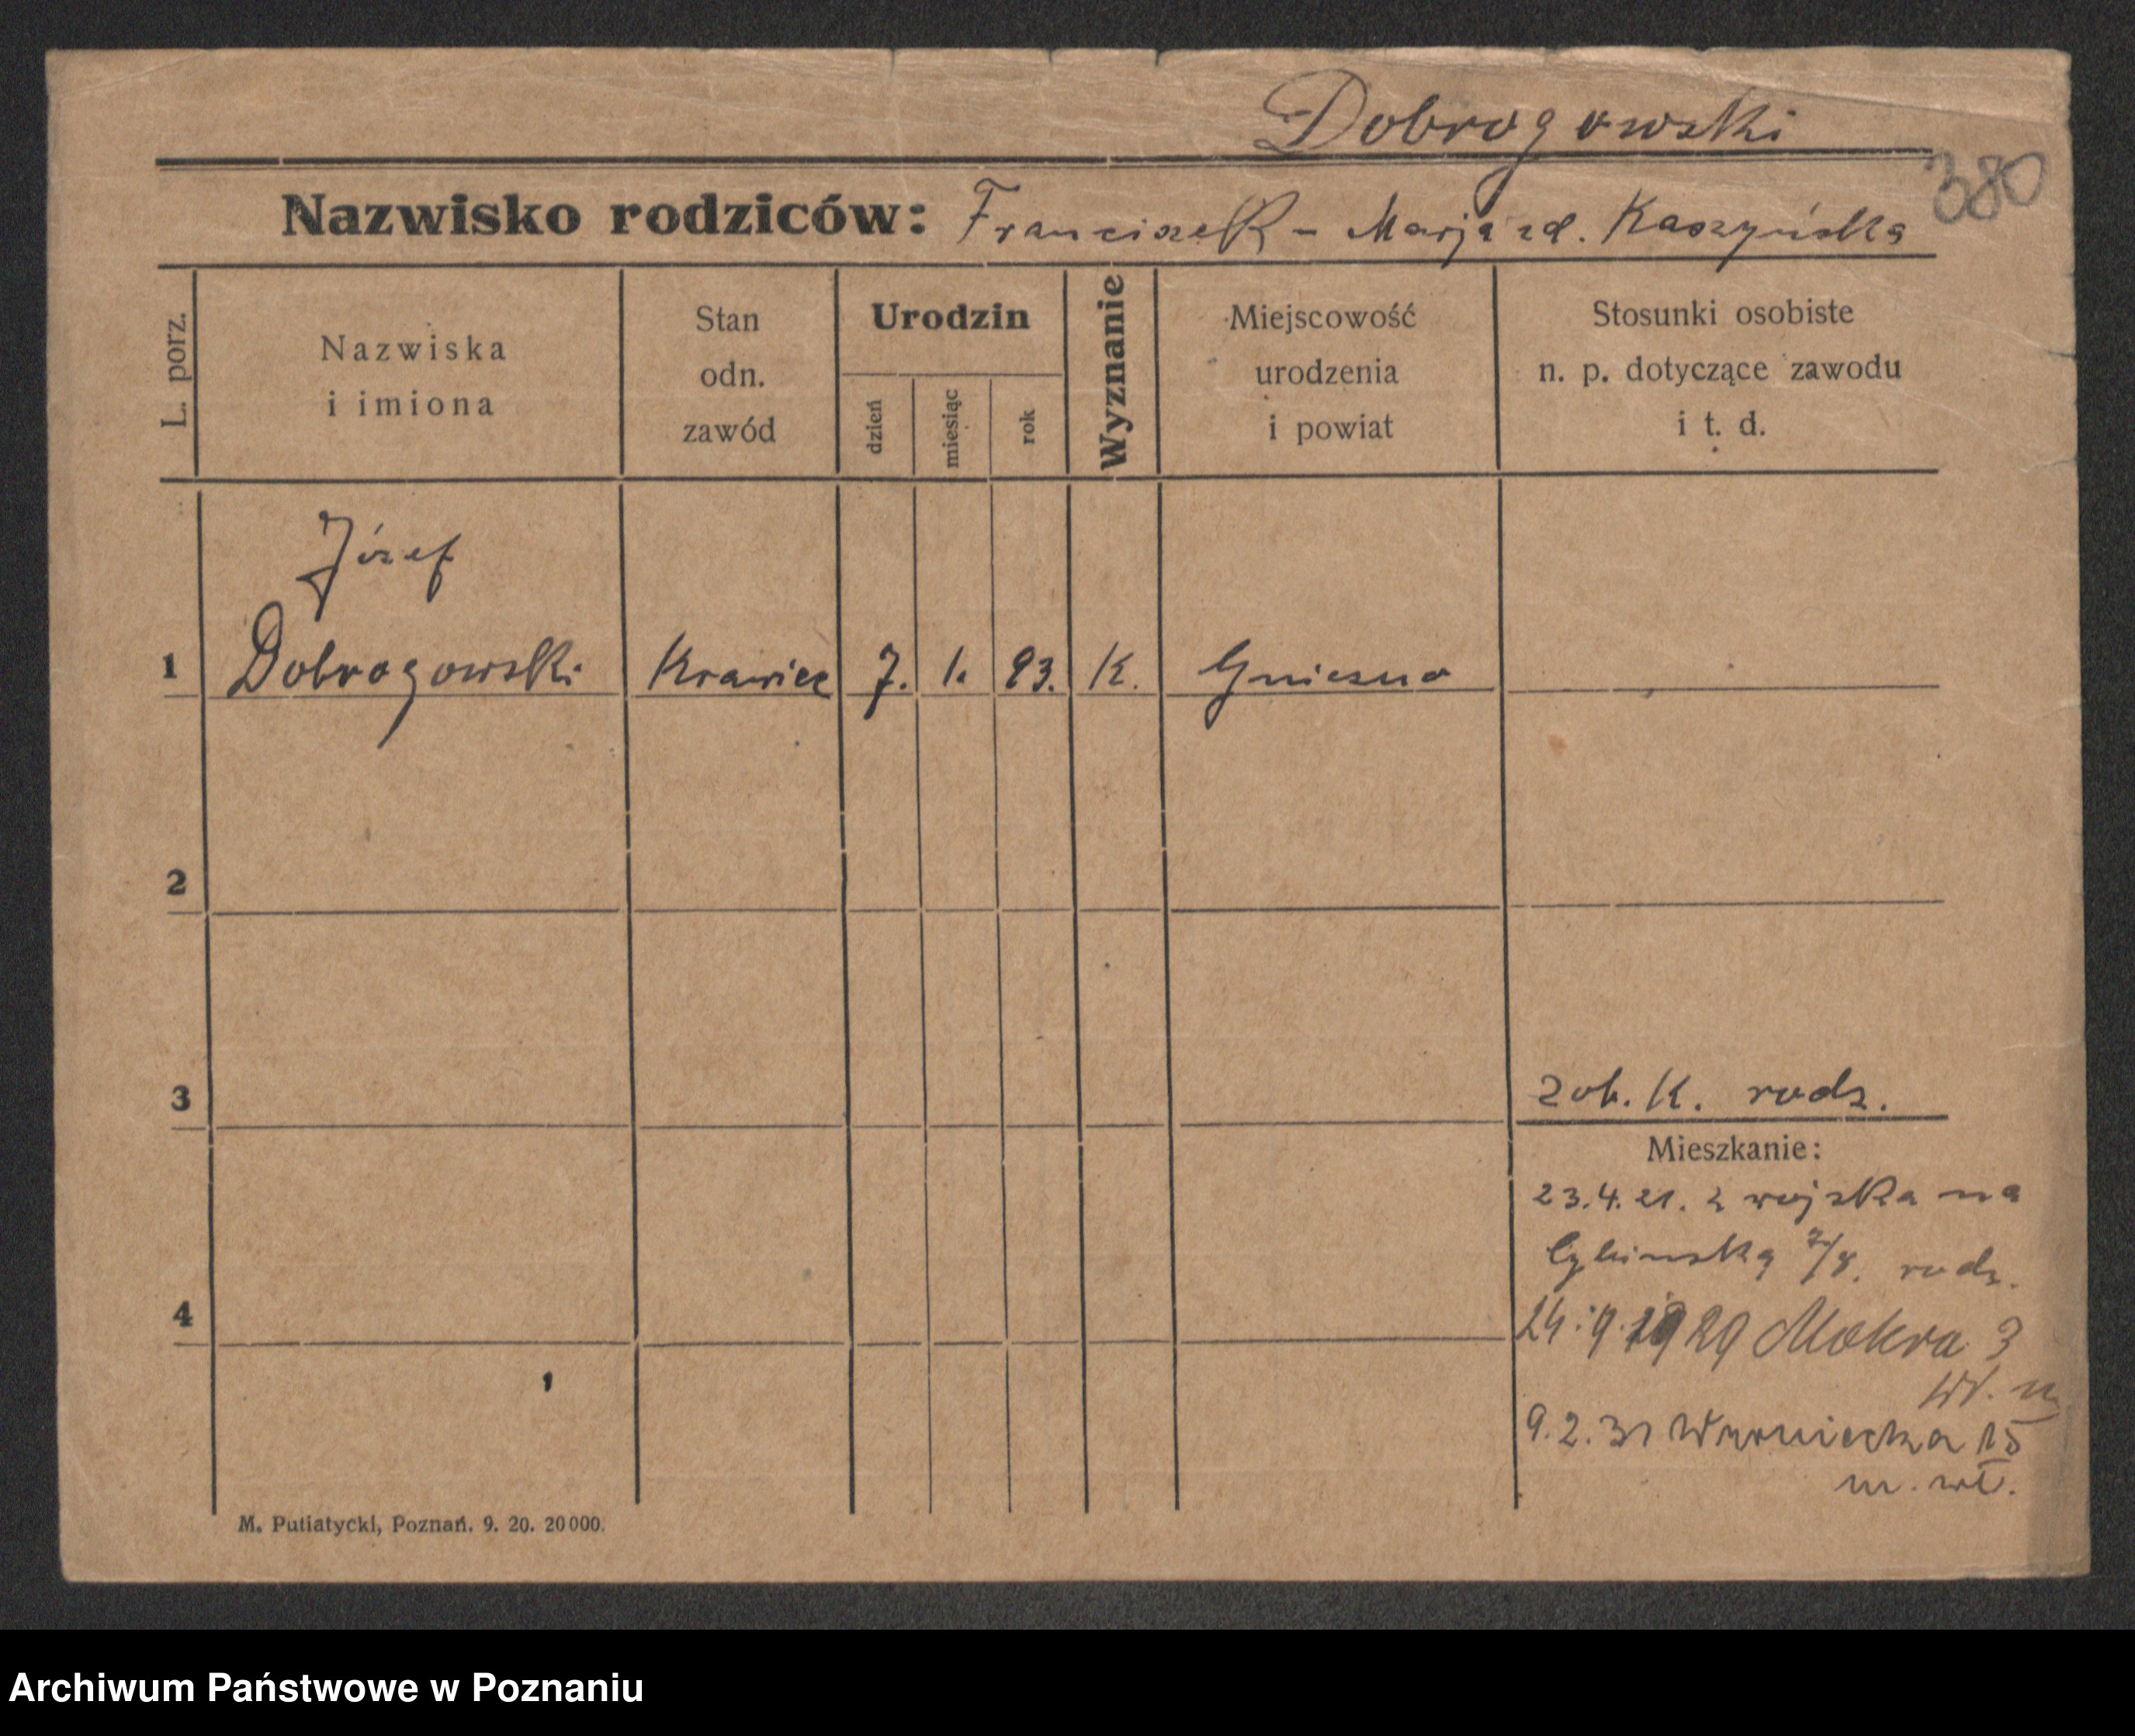 Dobrogowski
380
Nazwisko rodziców: Franciszek - Marja zd. Kaszyńska
L. porz.
Nazwiska
i imiona
Stan
odn.
zawód
Urodzin
dzień
miesiąc
rok
Wyznanie
Miejscowość
urodzenia
i powiat
Stosunki osobiste
n. p. dotyczące zawodu
i t. d.
Józef
1 Dobrogowski Krawiec 7. 1. 93. K. Gniezno
2
3 zob. K. rodz.
Mieszkanie:
23.4.21. z wojska na
Cybińską 7/8. rodz.
4
24.9.1929 Mokra 3
wł. m
9.2.31 Wroniecka 15
m. wł.
M. Putiatycki, Poznań. 9. 20. 20000.
Archiwum Państwowe w Poznaniu